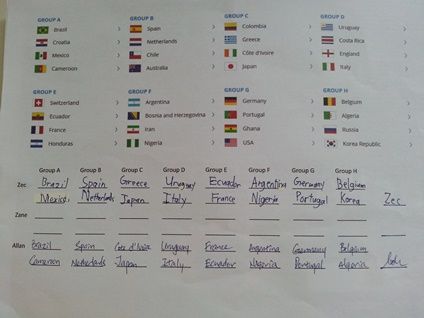 GROUP A GROUP B GROUP C GROUP D
Brazil Spain Colombia Uruguay
Croatia Netherlands Greece Costa Rica
Mexico Chile Côte d'Ivoire England
Cameroon Australia Japan Italy
GROUP E GROUP F GROUP G GROUP H
Switzerland Argentina Germany Belgium
Ecuador Bosnia and Herzegovina Portugal Algeria
France Iran Ghana Russia
Honduras Nigeria USA Korea Republic
Group A Group B Group C Group D Group E Group F Group G Group H
Zec Brazil Spain Greece Uruguay Ecuador Argentina Germany Belgium
Mexico Netherlands Japan Italy France Nigeria Portugal Korea Zec
Zane
Allan Brazil Spain Cote d'Ivoire Uruguay France Argentina Germany Belgium
Cameron Netherlands Japan Italy Ecuador Nageria Portugal Algeria